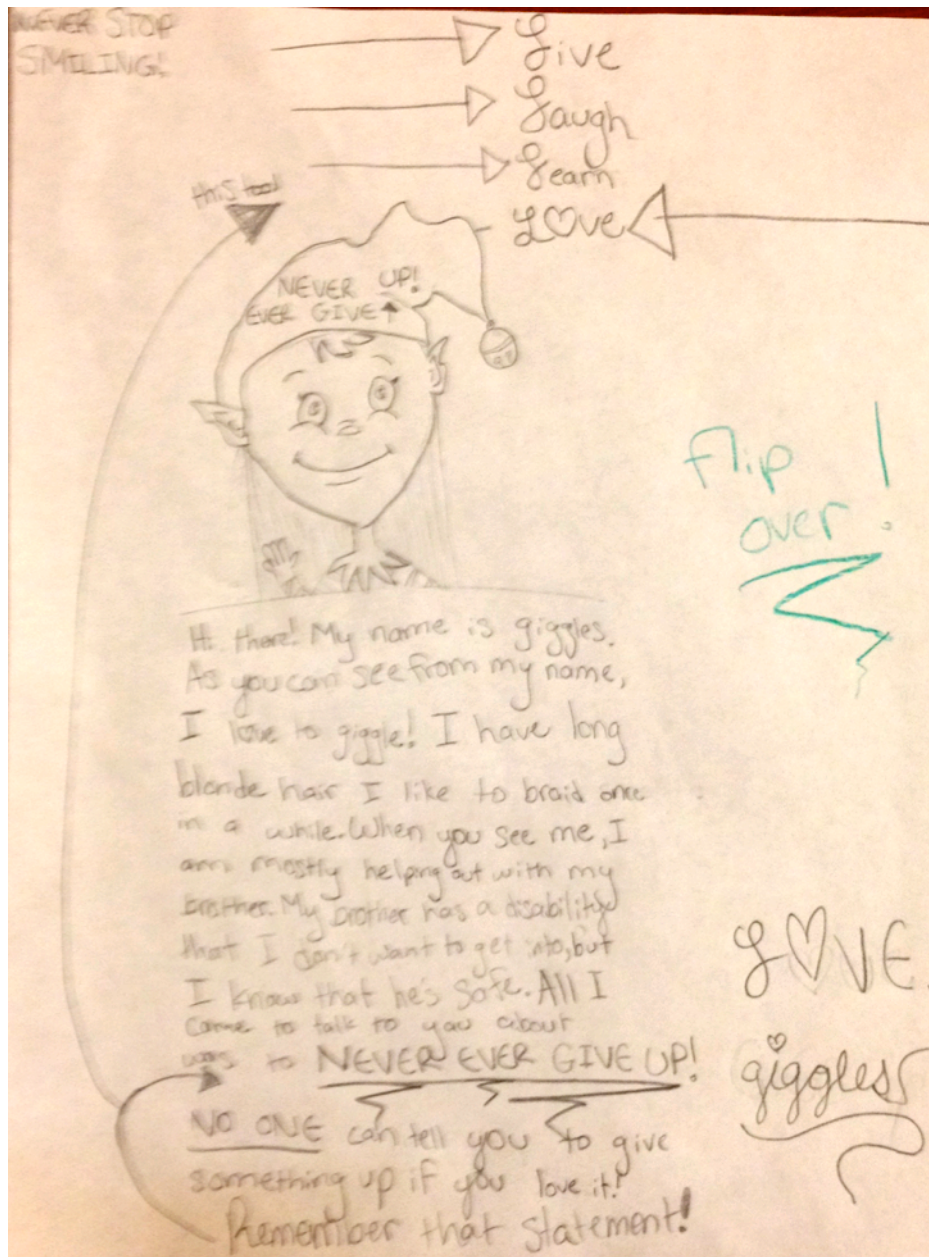 NEVER STOP
SMILING!
Live
Laugh
Learn
Love
this too!
NEVER UP!
EVER GIVE
flip
over!
Hi there! My name is giggles.
As you can see from my name,
I love to giggle! I have long
blonde hair I like to braid once
in a while. When you see me, I
am mostly helping out with my
brother. My brother has a disability
that I don't want to get into, but
I know that he's safe. All I
came to talk to you about
was to NEVER EVER GIVE UP!
NO ONE can tell you to give
something up if you love it!
Remember that statement!
LOVE,
giggles